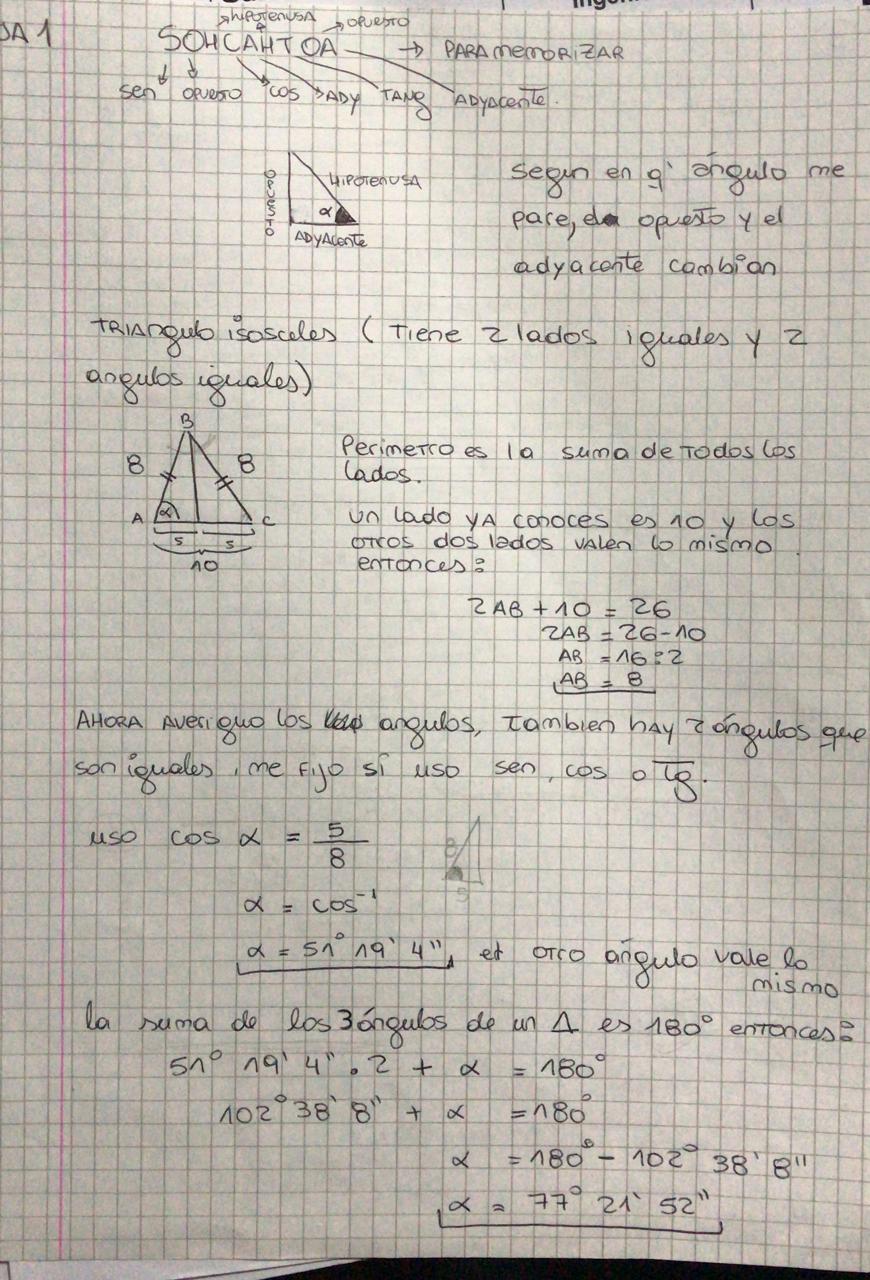 SA 1
HIPOTENUSA OPUESTO
SOHCAHTOA → PARA MEMORIZAR
sen opuesto cos ADY TANG ADYAcente.
OPUESTO
HIPOTENUSA
α
ADYAcente
segun en q' ángulo me
pare, el opuesto y el
adyacente cambian
TRIANgulo isosceles (Tiene 2 lados iguales y 2
angulos iguales)
B
8 8
A α C
5 5
10
Perimetro es la suma de Todos los
lados.
un lado YA conoces es 10 y los
otros dos lados valen lo mismo.
entonces:
2AB + 10 = 26
2AB = 26-10
AB = 16:2
AB = 8
AHORA AVERIGUO los angulos, Tambien hay 2 ángulos que
son iguales, me fijo si uso sen, cos o Tg.
uso cos α = 5/8
8
5
α = cos⁻¹
α = 51° 19' 4", el otro ángulo vale lo
mismo
la suma de los 3 ángulos de un Δ es 180° entonces:
51° 19' 4" . 2 + α = 180°
102° 38' 8" + α = 180°
α = 180° - 102° 38' 8"
α = 77° 21' 52"